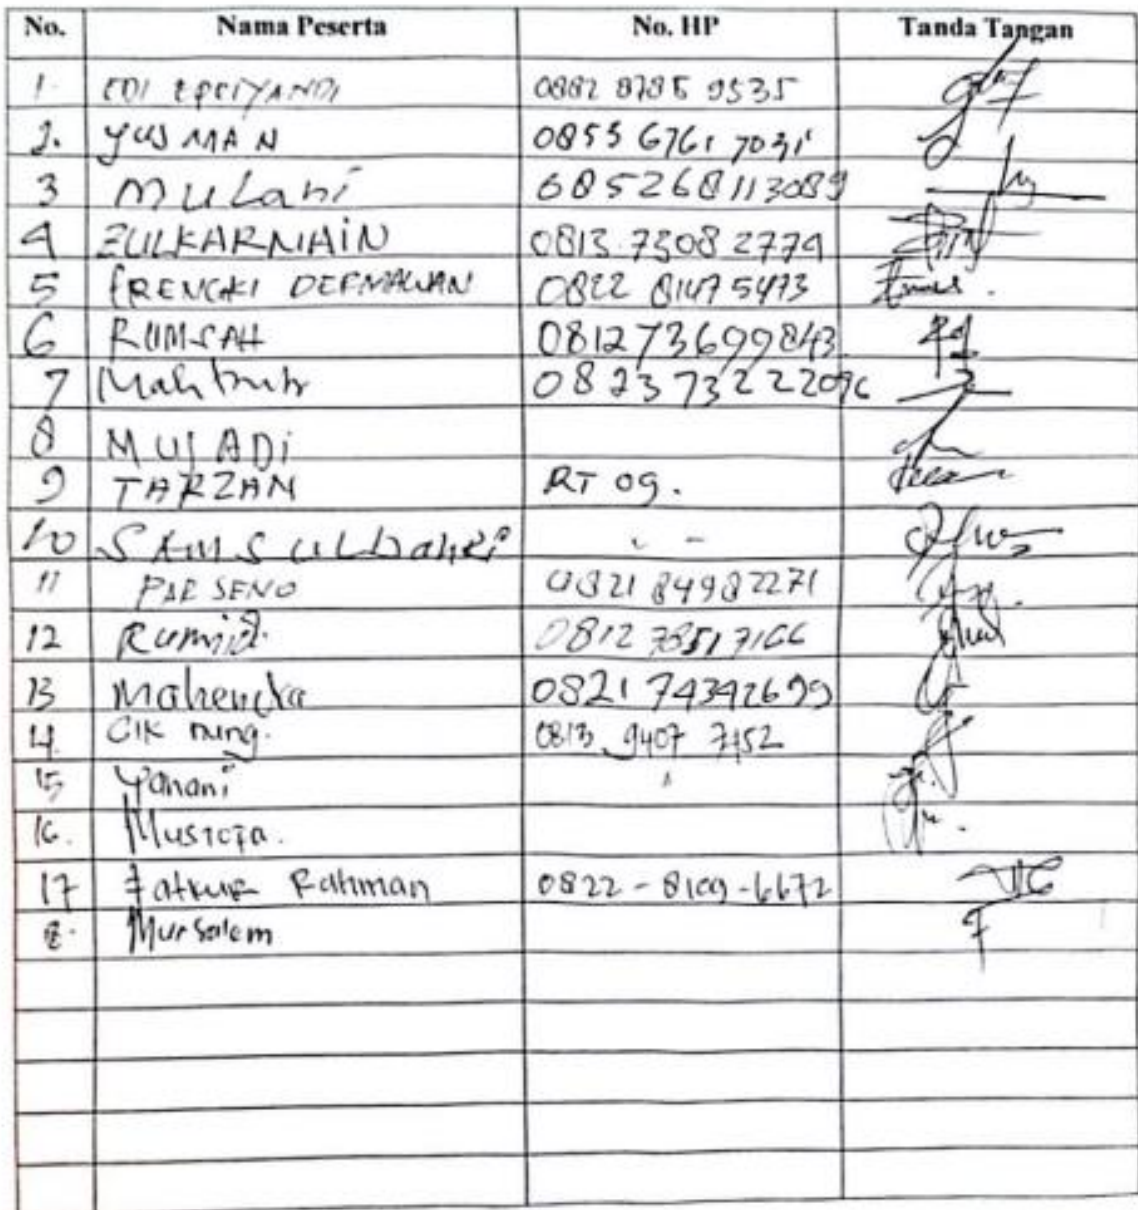 No. Nama Peserta No. HP Tanda Tangan
1. EDI EPRIYANDI 0882 8785 9535
2. YUSMAN 0853 6761 7031
3 Mulani 085268113089
4 ZULKARNAIN 0813 7308 2774
5 FRENGKI DERMAWAN 0822 8147 5473
6 RUMSAH 081273699843
7 Mahbub 082373222096
8 MULADi
9 TARZAN RT 09.
10 SAMSULbahri
11 PARSENO 0821 84982271
12 Rumid. 0812 78517166
13 Mahendra 0821 74342699
14. CIK ning. 0813 9407 7452
15 Yanani
16. Mustofa.
17 Fatkur Rohman 0822-8109-6672
8. Mursalem